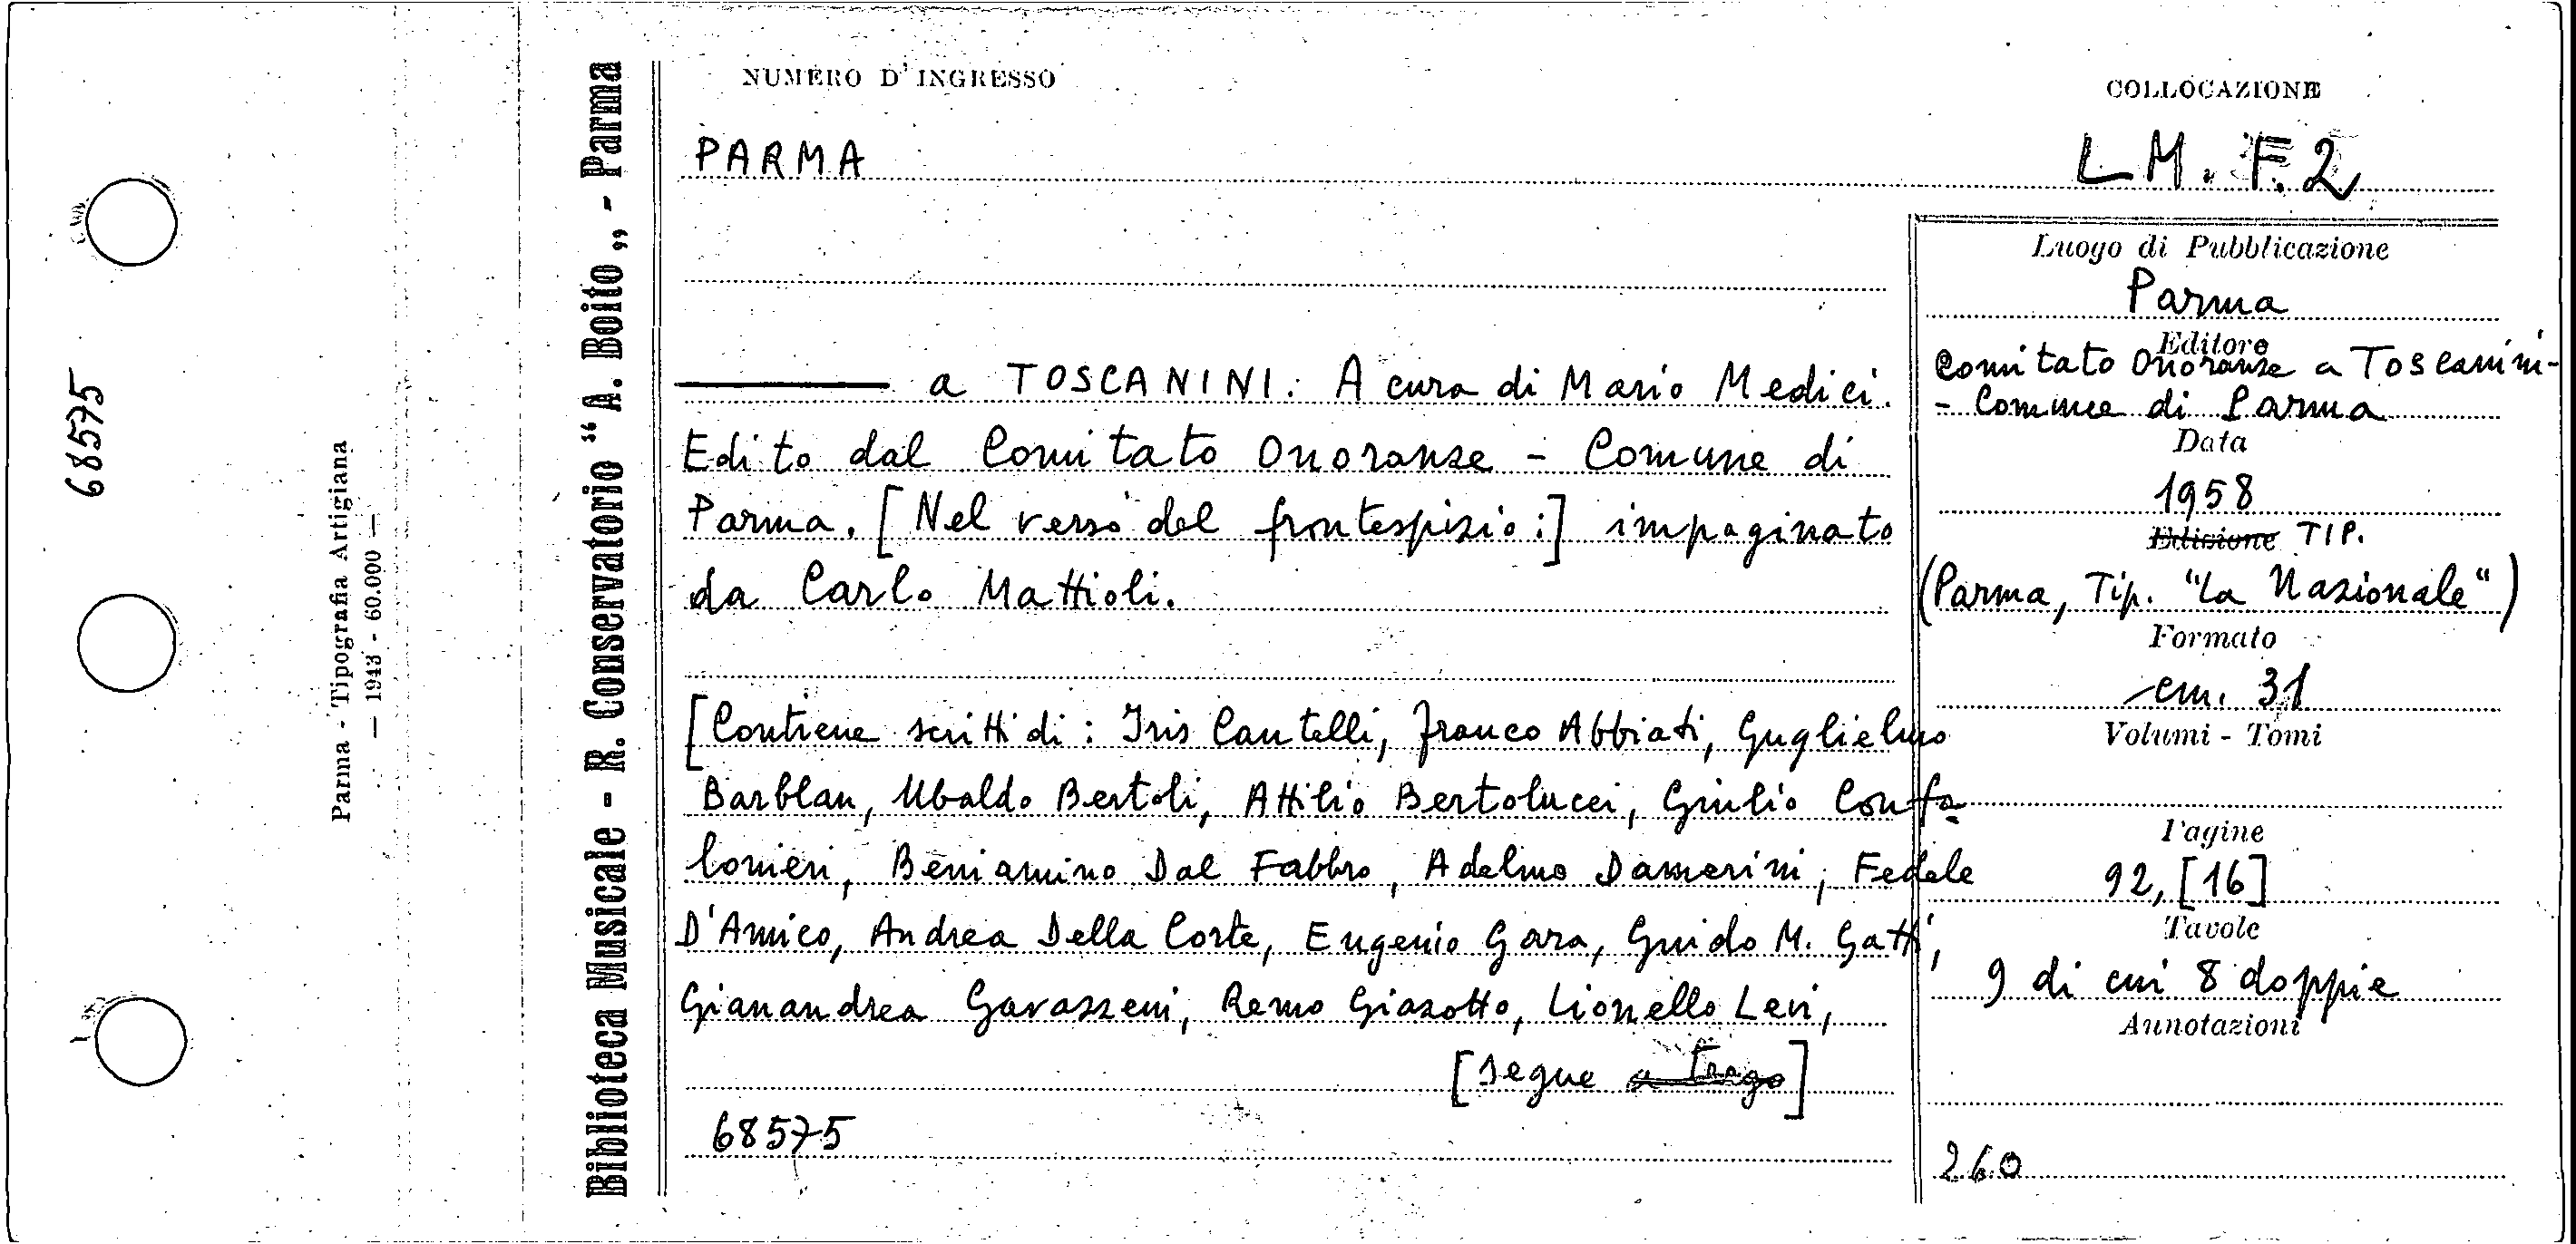 68575
Parma - Tipografia Artigiana
— 1943 - 60.000 —
Biblioteca Musicale - R. Conservatorio “A. Boito„ - Parma
NUMERO D'INGRESSO
COLLOCAZIONE
PARMA
L M. F.2
——— a TOSCANINI: A cura di Mario Medici.
Edito dal Comitato Onoranze - Comune di
Parma. [Nel verso del frontespizio:] impaginato
da Carlo Mattioli.
[Contiene scritti di: Iris Cantelli, Franco Abbiati, Guglielmo
Barblan, Ubaldo Bertoli, Attilio Bertolucci, Giulio Confa-
lonieri, Beniamino Dal Fabbro, Adelmo Damerini, Fedele
D'Amico, Andrea Della Corte, Eugenio Gara, Guido M. Gatti,
Gianandrea Gavazzeni, Remo Giazotto, Lionello Levi,
[segue a tergo]
68575
Luogo di Pubblicazione
Parma
Editore
Comitato Onoranze a Toscanini-
- Comune di Parma
Data
1958
Edizione TIP.
(Parma, Tip. "La Nazionale")
Formato
cm. 31
Volumi - Tomi
Pagine
92, [16]
Tavole
9 di cui 8 doppie
Annotazioni
260